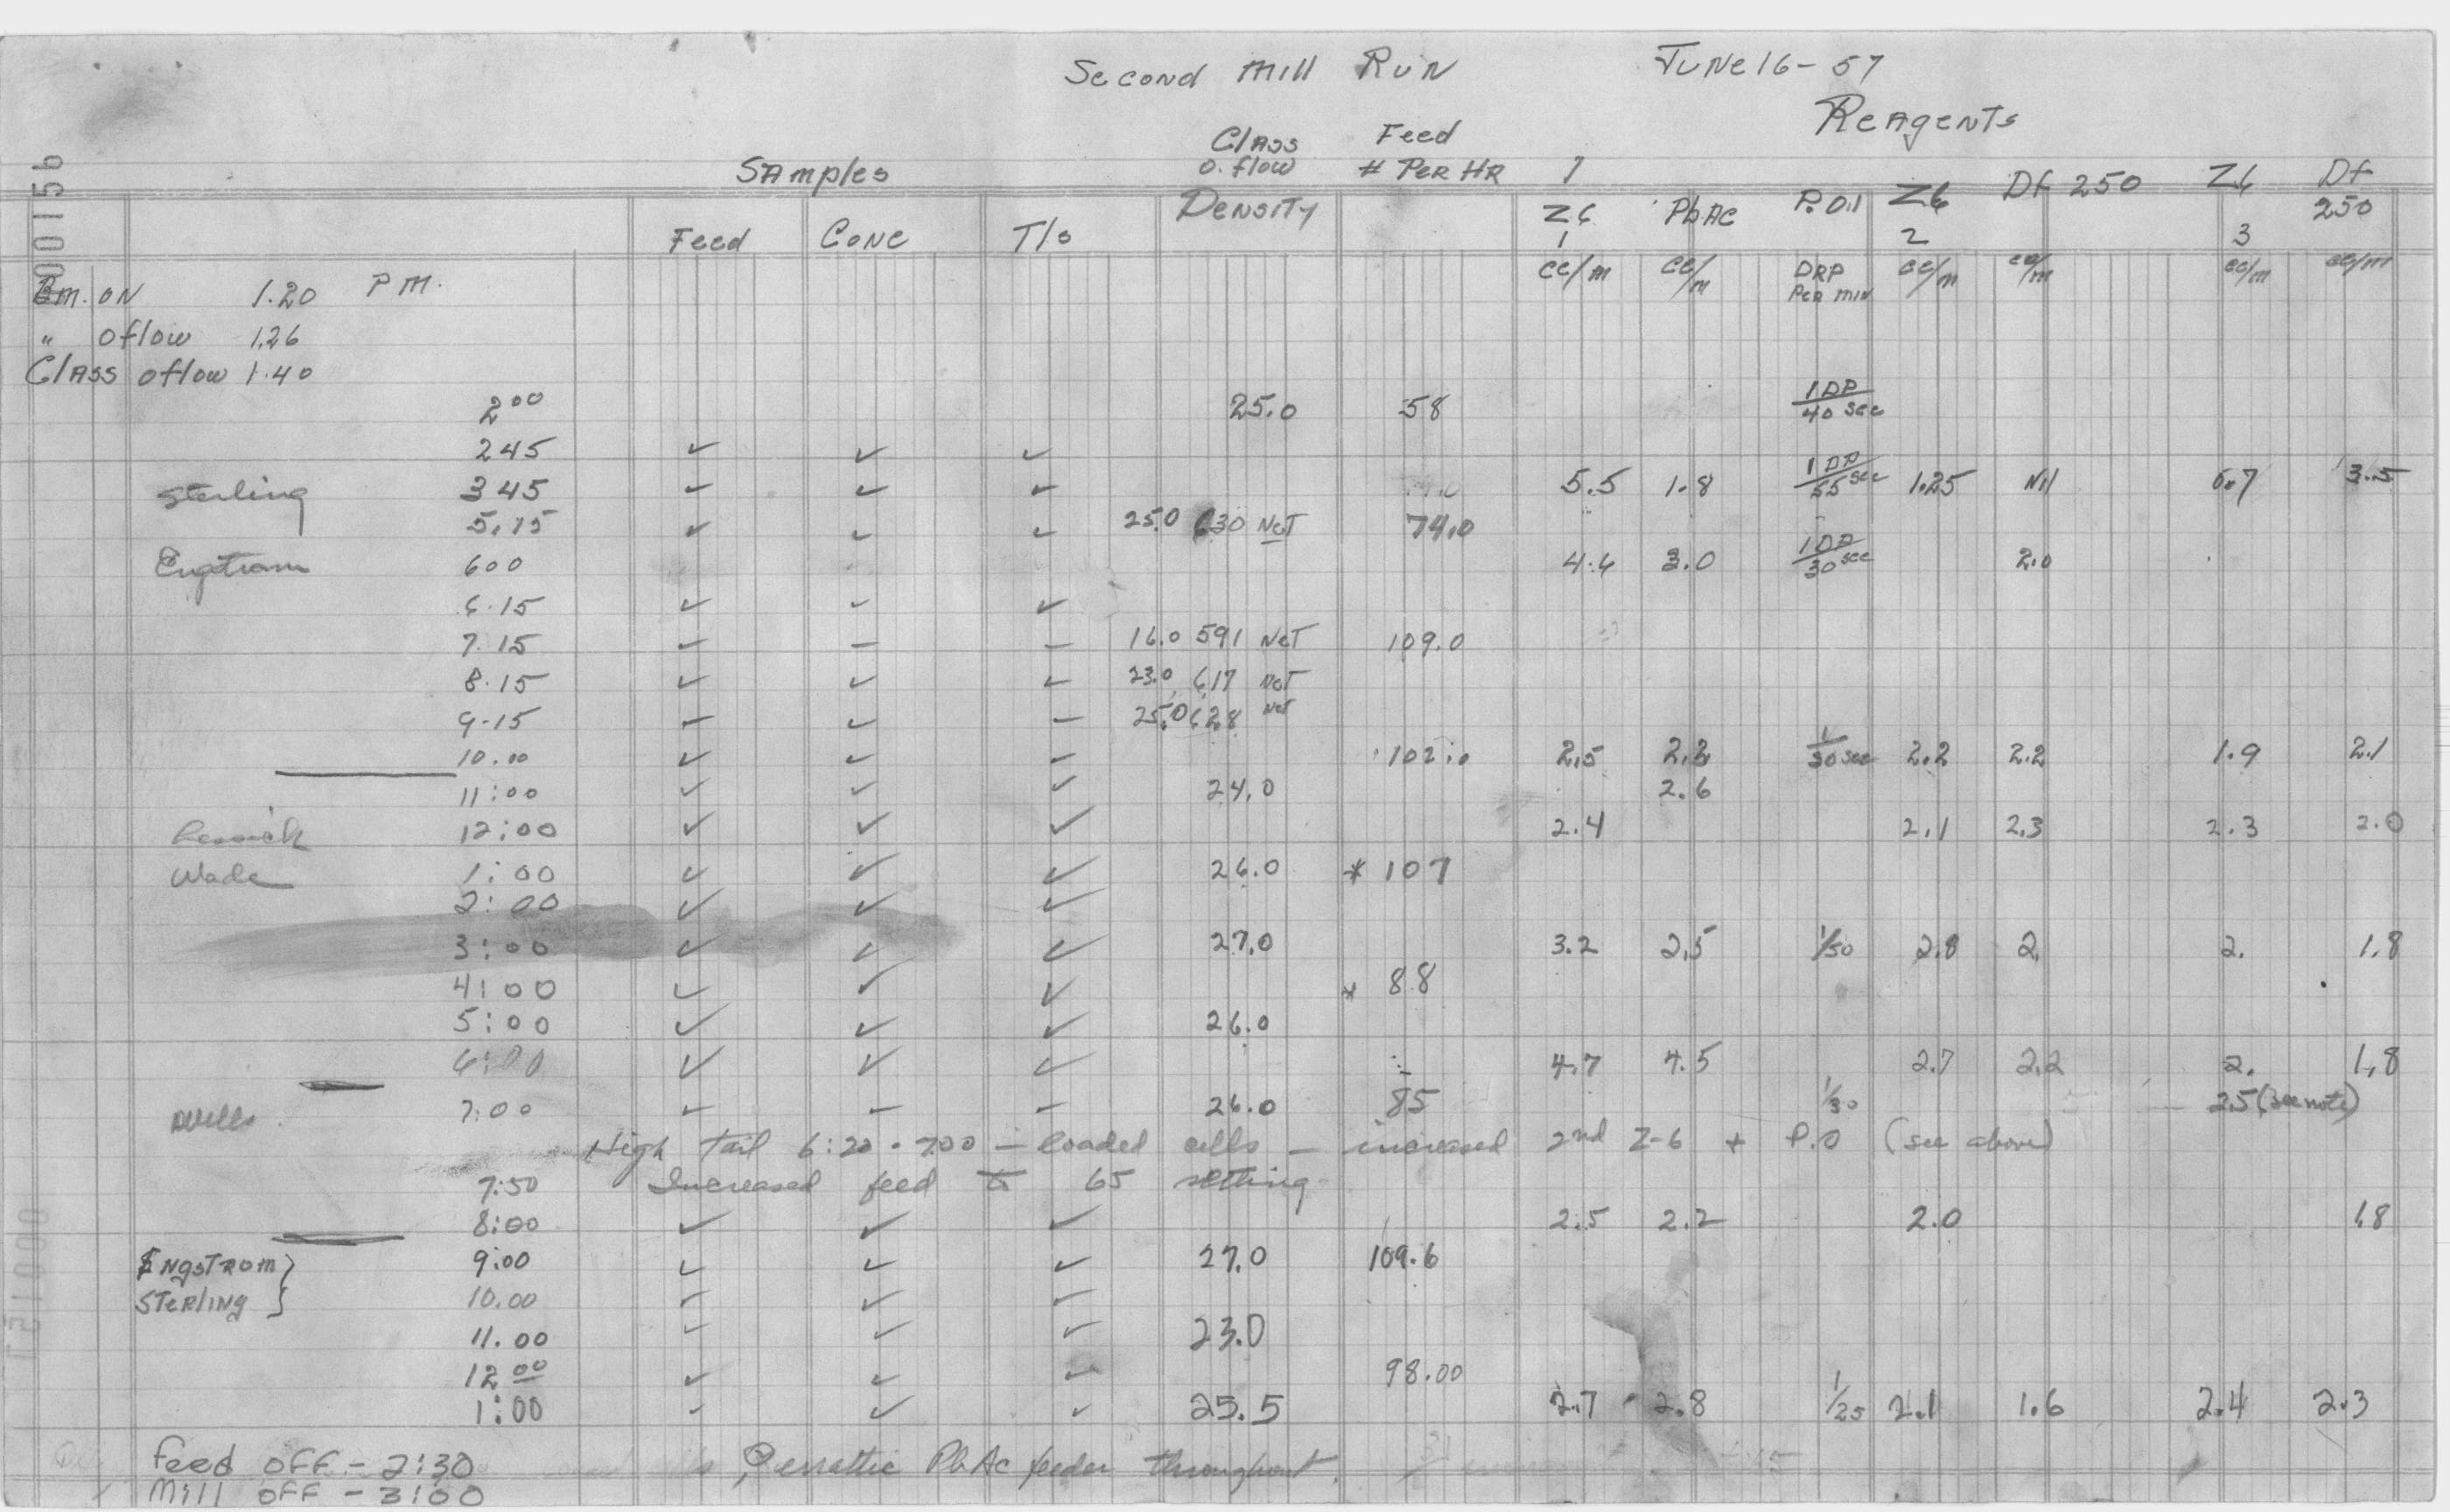 Second Mill Run June 16-57
Reagents
Samples
Class o. flow Density
Feed # Per HR
1
Feed Conc T/s
Z6 1 PbAc P. Oil Z6 2 Df 250 Z6 3 Df 250
cc/m cc/m DRP Per min cc/m cc/m cc/m cc/m
00156
Bm. on 1.20 PM.
" oflow 1.26
Class oflow 1.40
2 00 25.0 58 1 DP/40 sec
245 ✓ ✓ ✓
Sterling 345 ✓ ✓ ✓ 5.5 1.8 1 DP/55 sec 1.25 Nil 3.5
5.15 ✓ ✓ ✓ 25.0 630 Net 74.0
600 4.6 3.0 1 DP/30 sec 2.0
6.15 ✓ ✓ ✓
7.15 ✓ – – 16.0 591 Net 109.0
8.15 ✓ ✓ ✓ 23.0 617 Net
9-15 – ✓ – 25.0 628 Net
10.00 ✓ ✓ ✓ 102.0 2.5 2.2 1/30 sec 2.2 2.2 1.9 2.1
11:00 ✓ ✓ ✓ 24.0 2.6
12:00 ✓ ✓ ✓ 2.4 2.1 2.3 2.3 2.0
Wade 1:00 ✓ ✓ ✓ 26.0 * 107
2:00 ✓ ✓ ✓
3:00 ✓ ✓ ✓ 27.0 3.2 2.5 1/30 2.8 2. 2. 1.8
4:00 ✓ ✓ ✓ * 88
5:00 ✓ ✓ ✓ 26.0
6:00 ✓ ✓ ✓ 4.7 4.5 2.7 2.2 2. 1.8
Wells 7:00 – – – 26.0 85 1/30 2.5 (see note)
High tail 6:20 - 7:00 – loaded cells – increased 2nd Z-6 + P.O (see above)
7:50 Increased feed to 65 setting
8:00 ✓ ✓ ✓ 2.5 2.2 2.0 1.8
Engstrom } 9:00 ✓ ✓ ✓ 27.0 109.6
Sterling } 10.00 ✓ ✓ ✓
11.00 ✓ ✓ ✓ 23.0
12 00 ✓ ✓ ✓ 98.00
1:00 ✓ ✓ ✓ 25.5 2.7 2.8 1/25 2.1 1.6 2.4 2.3
Feed off - 2:30 errattic PbAc feeder throughout.
Mill off - 3:00